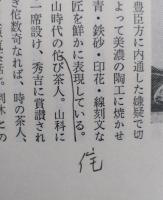 豊臣方に内通した嫌疑で切
よって美濃の陶工に焼かせ
青・鉄砂・印花・線刻文な
匠を鮮かに表現している。
山時代の侘び茶人。山科に
一席設け、秀吉に賞讃され
き侘数奇なれば、時の茶人、
利休との
侘